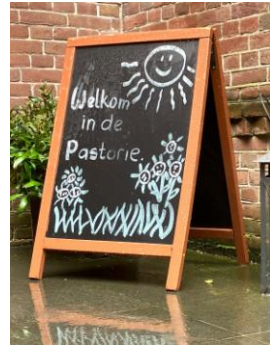 Welkom
in de
Pastorie.